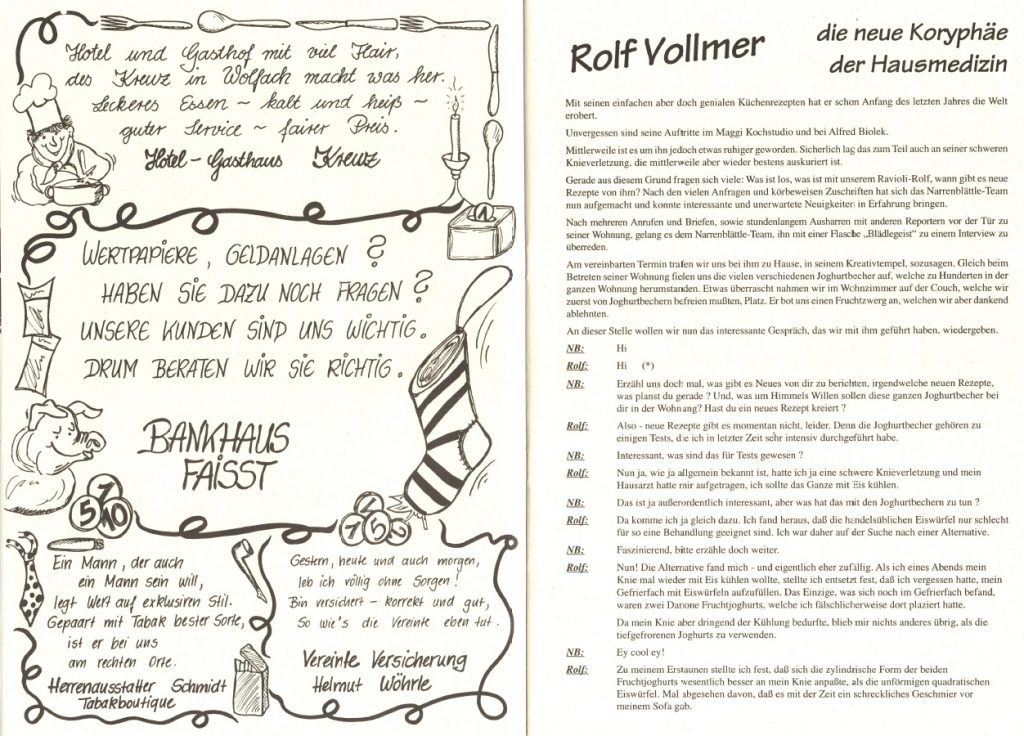 Hotel und Gasthof mit viel Flair,
des Kreuz in Wolfach macht was her.
Leckeres Essen ~ kalt und heiß ~
guter Service ~ fairer Preis.
Hotel - Gasthaus Kreuz
1
WERTPAPIERE, GELDANLAGEN ?
HABEN SIE DAZU NOCH FRAGEN ?
UNSERE KUNDEN SIND UNS WICHTIG.
DRUM BERATEN WIR SIE RICHTIG.
BANKHAUS
FAISST
5 1 10
1 7 5 5
Ein Mann, der auch
ein Mann sein will,
legt Wert auf exklusiven Stil.
Gepaart mit Tabak bester Sorte,
ist er bei uns
am rechten Orte.
Herrenausstatter Schmidt
Tabakboutique
Gestern, heute und auch morgen,
leb ich völlig ohne Sorgen!
Bin versichert - korrekt und gut,
So wie's die Vereinte eben tut.
Vereinte Versicherung
Helmut Wöhrle
Rolf Vollmer
die neue Koryphäe
der Hausmedizin
Mit seinen einfachen aber doch genialen Küchenrezepten hat er schon Anfang des letzten Jahres die Welt
erobert.
Unvergessen sind seine Auftritte im Maggi Kochstudio und bei Alfred Biolek.
Mittlerweile ist es um ihn jedoch etwas ruhiger geworden. Sicherlich lag das zum Teil auch an seiner schweren
Knieverletzung, die mittlerweile aber wieder bestens auskuriert ist.
Gerade aus diesem Grund fragen sich viele: Was ist los, was ist mit unserem Ravioli-Rolf, wann gibt es neue
Rezepte von ihm? Nach den vielen Anfragen und körbeweisen Zuschriften hat sich das Narrenblättle-Team
nun aufgemacht und konnte interessante und unerwartete Neuigkeiten in Erfahrung bringen.
Nach mehreren Anrufen und Briefen, sowie stundenlangem Ausharren mit anderen Reportern vor der Tür zu
seiner Wohnung, gelang es dem Narrenblättle-Team, ihn mit einer Flasche „Blädlegeist" zu einem Interview zu
überreden.
Am vereinbarten Termin trafen wir uns bei ihm zu Hause, in seinem Kreativtempel, sozusagen. Gleich beim
Betreten seiner Wohnung fielen uns die vielen verschiedenen Joghurtbecher auf, welche zu Hunderten in der
ganzen Wohnung herumstanden. Etwas überrascht nahmen wir im Wohnzimmer auf der Couch, welche wir
zuerst von Joghurtbechern befreien mußten, Platz. Er bot uns einen Fruchtzwerg an, welchen wir aber dankend
ablehnten.
An dieser Stelle wollen wir nun das interessante Gespräch, das wir mit ihm geführt haben, wiedergeben.
NB: Hi
Rolf: Hi (*)
NB: Erzähl uns doch mal, was gibt es Neues von dir zu berichten, irgendwelche neuen Rezepte,
was planst du gerade ? Und, was um Himmels Willen sollen diese ganzen Joghurtbecher bei
dir in der Wohnung? Hast du ein neues Rezept kreiert ?
Rolf: Also - neue Rezepte gibt es momentan nicht, leider. Denn die Joghurtbecher gehören zu
einigen Tests, die ich in letzter Zeit sehr intensiv durchgeführt habe.
NB: Interessant, was sind das für Tests gewesen ?
Rolf: Nun ja, wie ja allgemein bekannt ist, hatte ich ja eine schwere Knieverletzung und mein
Hausarzt hatte mir aufgetragen, ich sollte das Ganze mit Eis kühlen.
NB: Das ist ja außerordentlich interessant, aber was hat das mit den Joghurtbechern zu tun ?
Rolf: Da komme ich ja gleich dazu. Ich fand heraus, daß die handelsüblichen Eiswürfel nur schlecht
für so eine Behandlung geeignet sind. Ich war daher auf der Suche nach einer Alternative.
NB: Faszinierend, bitte erzähle doch weiter.
Rolf: Nun! Die Alternative fand mich - und eigentlich eher zufällig. Als ich eines Abends mein
Knie mal wieder mit Eis kühlen wollte, stellte ich entsetzt fest, daß ich vergessen hatte, mein
Gefrierfach mit Eiswürfeln aufzufüllen. Das Einzige, was sich noch im Gefrierfach befand,
waren zwei Danone Fruchtjoghurts, welche ich fälschlicherweise dort plaziert hatte.
Da mein Knie aber dringend der Kühlung bedurfte, blieb mir nichts anderes übrig, als die
tiefgefrorenen Joghurts zu verwenden.
NB: Ey cool ey!
Rolf: Zu meinem Erstaunen stellte ich fest, daß sich die zylindrische Form der beiden
Fruchtjoghurts wesentlich besser an mein Knie anpaßte, als die unförmigen quadratischen
Eiswürfel. Mal abgesehen davon, daß es mit der Zeit ein schreckliches Geschmier vor
meinem Sofa gab.